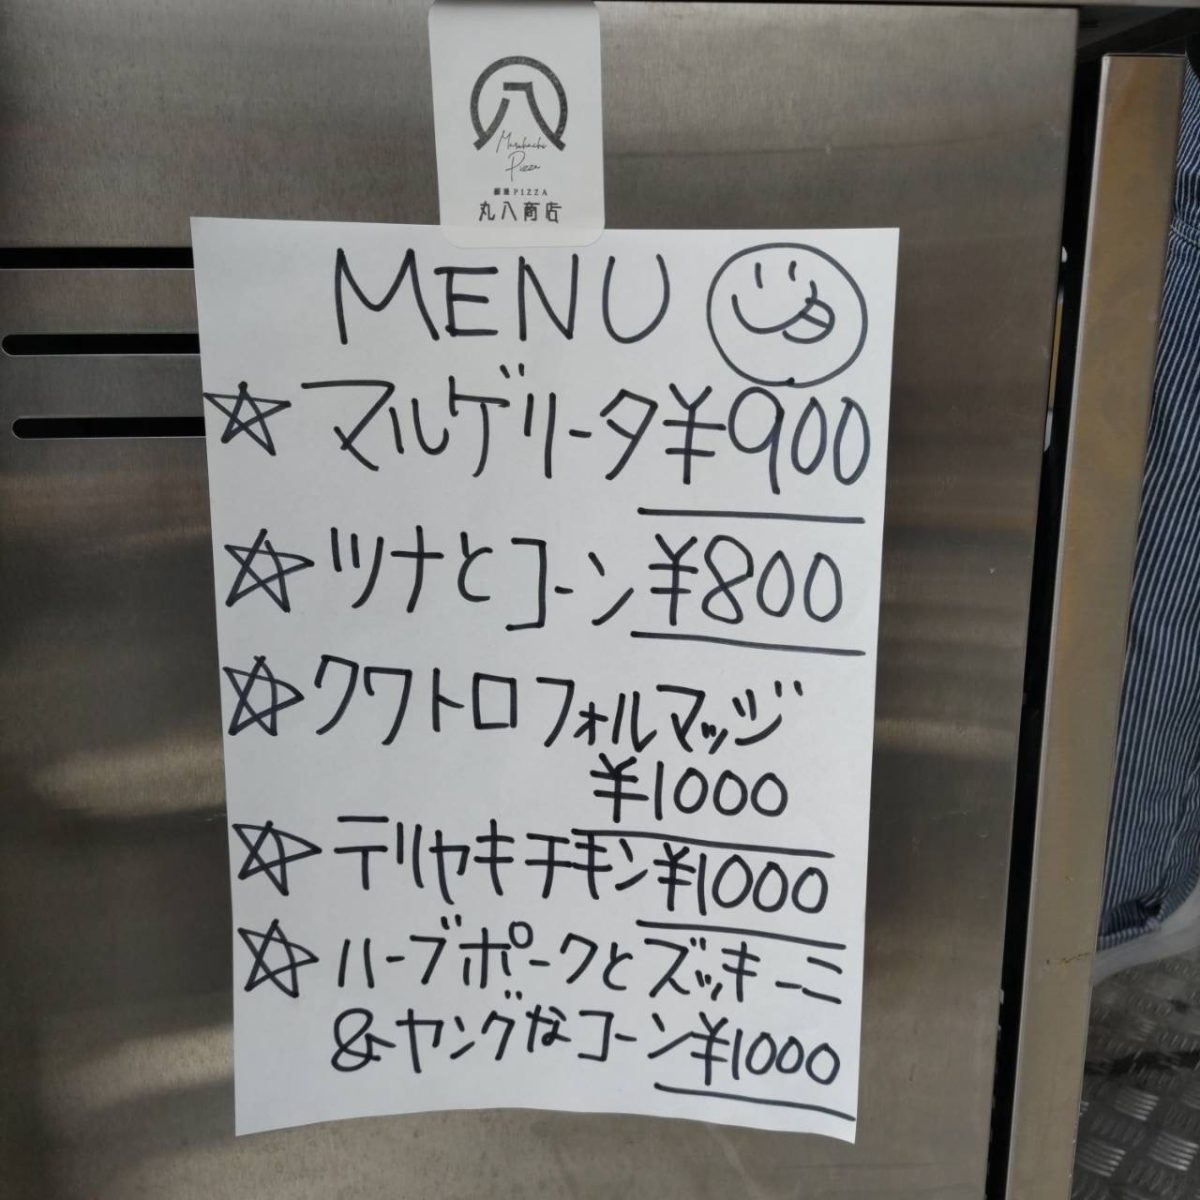 八
Maruhachi
Pizza
PIZZA
丸八商店
MENU
☆マルゲリータ¥900
☆ツナとコーン¥800
☆クワトロフォルマッジ
¥1000
☆テリヤキチキン¥1000
☆ハーブポークとズッキーニ
&ヤングなコーン¥1000